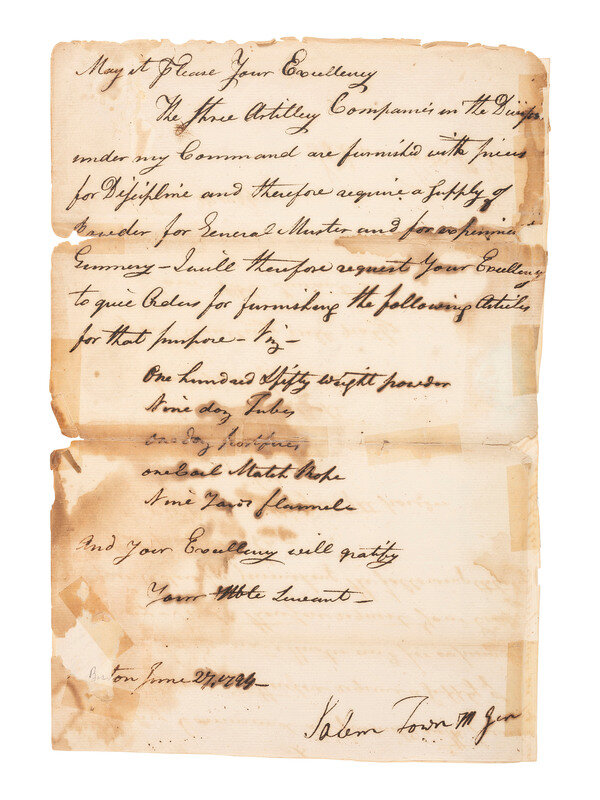 May it Please Your Excellency
The three Artillery Companies in the Division
under my Command are furnished with pieces
for Discipline and therefore require a Supply of
Powder for General Muster and for
Gunnery – I will therefore request Your Excellency
to give Orders for furnishing the following Articles
for that purpose – Viz –
One hundred & fifty weight powder
Nine doz Tubes
one doz portfires
one Coil Match Rope
Nine Yards flannel
And Your Excellency will gratify
Your Hble Servant –
Boston June 27, 1794 –
Salem Town M Gen